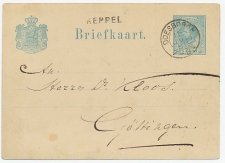 KEPPEL
Briefkaart.
DOESBORGH
An.
Herrn Dr. Kloos.
Göttingen.